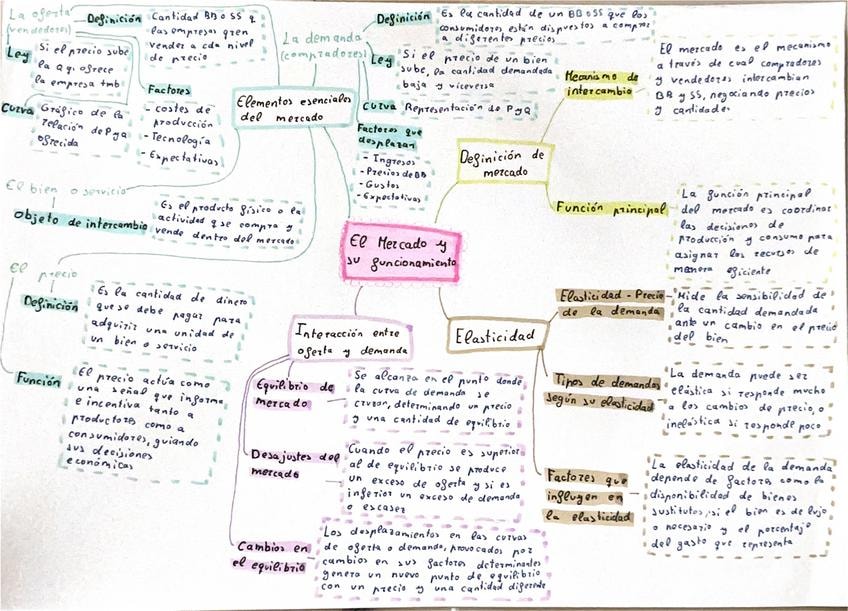 El Mercado y
su funcionamiento
Elementos esenciales
del mercado
La oferta
(vendedores)
Definición
Cantidad BB o SS q
las empresas qren
vender a cda nivel
de precio
Ley
Si el precio sube
la Q q ofrece
la empresa tmb
Curva
Gráfico de la
relación de P y Q
ofrecida
Factores
- costes de
producción
- Tecnología
- Expectativas
La demanda
(compradores)
Definición
Es la cantidad de un BB o SS que los
consumidores están dispuestos a comprar
a diferentes precios
Ley
Si el precio de un bien
sube, la cantidad demandada
baja y viceversa
Curva
Representación de P y Q
Factores que
desplazan
- Ingresos
- Precios de BB
- Gustos
- Expectativas
El bien o servicio
Objeto de intercambio
Es el producto físico o la
actividad que se compra y
vende dentro del mercado
El precio
Definición
Es la cantidad de dinero
que se debe pagar para
adquirir una unidad de
un bien o servicio
Función
El precio actúa como
una señal que informa
e incentiva tanto a
productores como a
consumidores, guiando
sus decisiones
económicas
Definición de
mercado
Mecanismo de
intercambio
El mercado es el mecanismo
a través de cual compradores
y vendedores intercambian
BB y SS, negociando precios
y cantidades
Función principal
La función principal
del mercado es coordinar
las decisiones de
producción y consumo para
asignar los recursos de
manera eficiente
Elasticidad
Elasticidad - Precio
de la demanda
Mide la sensibilidad de
la cantidad demandada
ante un cambio en el precio
del bien
Tipos de demandas
según su elasticidad
La demanda puede ser
elástica si responde mucho
a los cambios de precio, o
inelástica si responde poco
Factores que
influyen en
la elasticidad
La elasticidad de la demanda
depende de factores como la
disponibilidad de bienes
sustitutos, si el bien es de lujo
o necesario y el porcentaje
del gasto que representa
Interacción entre
oferta y demanda
Equilibrio de
mercado
Se alcanza en el punto donde
la curva de demanda se
cruzan, determinando un precio
y una cantidad de equilibrio
Desajustes del
mercado
Cuando el precio es superior
al de equilibrio se produce
un exceso de oferta y si es
inferior un exceso de demanda
o escasez
Cambios en
el equilibrio
Los desplazamientos en las curvas
de oferta o demanda, provocados por
cambios en sus factores determinantes
genera un nuevo punto de equilibrio
con un precio y una cantidad diferente